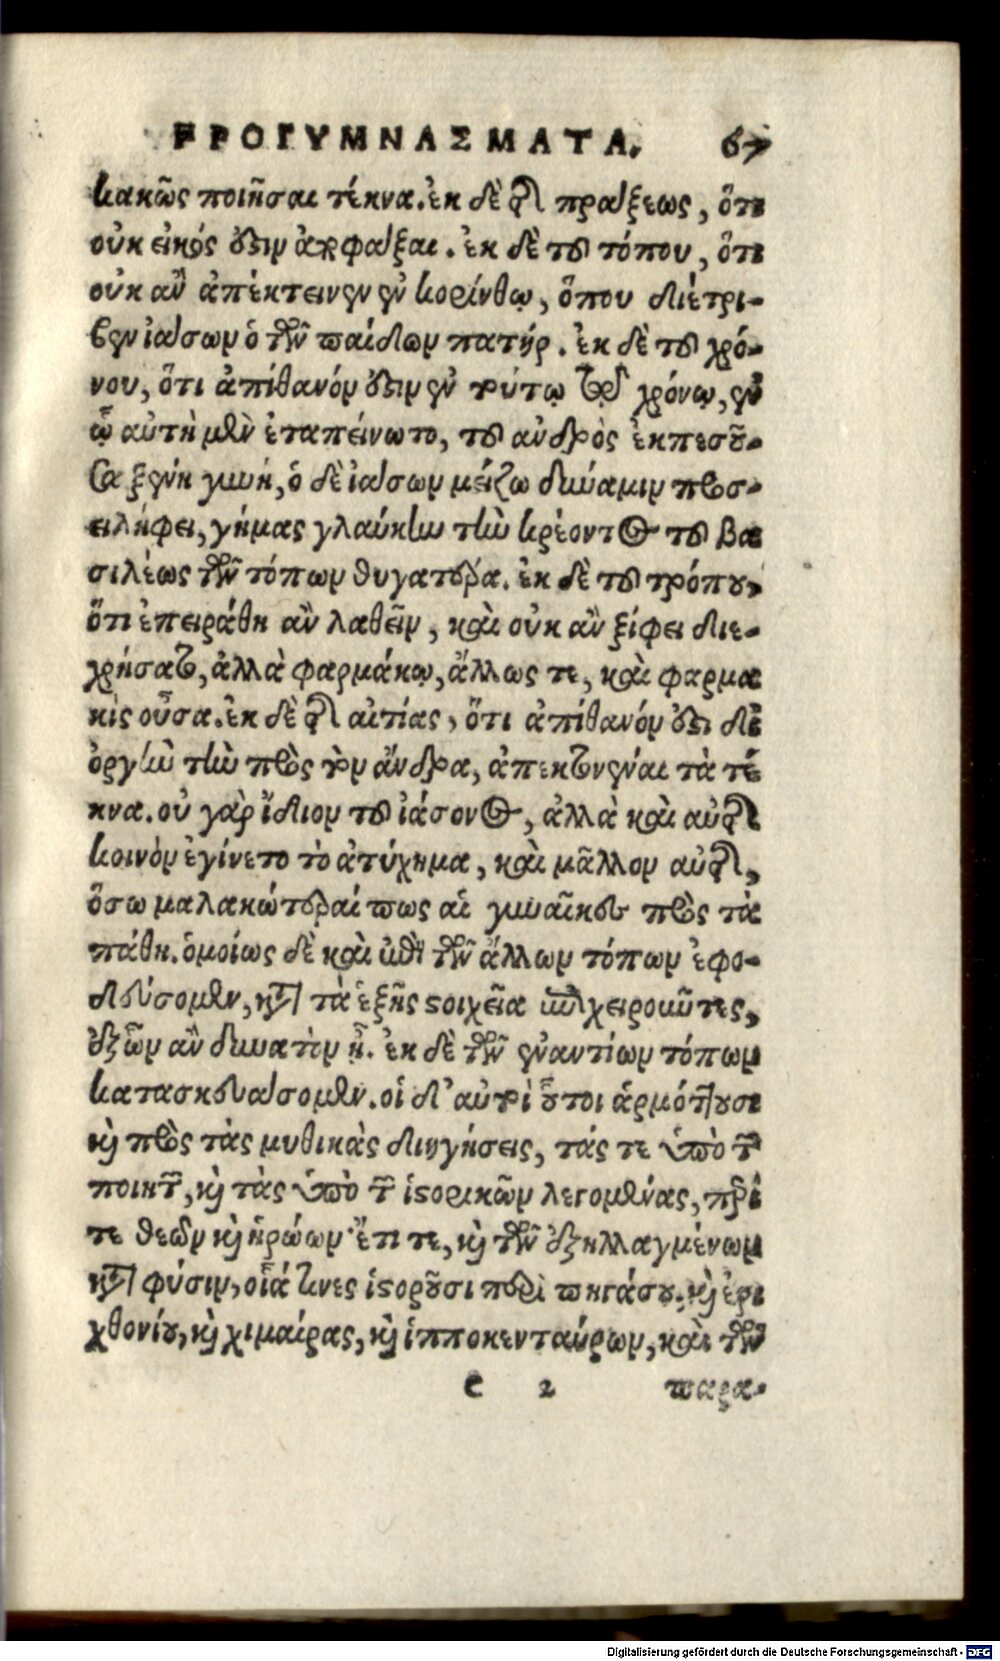 ΠΡΟΓΥΜΝΑΣΜΑΤΑ. 67
κακῶς ποιῆσαι τέκνα. ἐκ δὲ τῆς πράξεως, ὅτι
οὐκ εἰκός ὅβιν ἀποσφάξαι. ἐκ δὲ τοῦ τόπου, ὅτι
οὐκ ἂν ἀπέκτεινεν ἐν κορίνθῳ, ὅπου διέτρι-
βεν ἰάσων ὁ τῶν παίδων πατήρ. ἐκ δὲ τοῦ χρό-
νου, ὅτι ἀπίθανόν ἐστιν ἐν τούτῳ τῷ χρόνῳ, ἐν
ᾧ αὐτὴ μὲν ἐταπείνωτο, τοῦ ἀνδρὸς ἐκπεσοῦ-
σα ξένη γυνή, ὁ δὲ ἰάσων μείζω δύναμιν προσ-
ειλήφει, γήμας γλαύκην τὴν κρέοντος τοῦ βα
σιλέως τῶν τόπων θυγατέρα. ἐκ δὲ τοῦ τρόπου,
ὅτι ἐπειράθη ἂν λαθεῖν, καὶ οὐκ ἂν ξίφει διε-
χρήσατο, ἀλλὰ φαρμάκῳ, ἄλλως τε, καὶ φαρμα
κὶς οὖσα. ἐκ δὲ τῆς αἰτίας, ὅτι ἀπίθανόν ἐστι δι'
ὀργὴν τὴν πρὸς τὸν ἄνδρα, ἀπεκτονέναι τὰ τέ
κνα. οὐ γὰρ ἴδιον τοῦ ἰάσονος, ἀλλὰ καὶ αὐτῆς
κοινὸν ἐγίνετο τὸ ἀτύχημα, καὶ μᾶλλον αὐτῆς,
ὅσω μαλακώτεραί πως αἱ γυναῖκες πρὸς τὰ
πάθη. ὁμοίως δὲ καὶ ἐπὶ τῶν ἄλλων τόπων ἐφο-
δεύσομεν, κατὰ τὰ ἑξῆς στοιχεῖα ἐπιχειροῦντες,
ἐξ ὧν ἂν δυνατὸν ᾖ. ἐκ δὲ τῶν ἐναντίων τόπων
κατασκευάσομεν. οἱ δ' αὐτοὶ οὗτοι ἁρμόττουσι
καὶ πρὸς τὰς μυθικὰς διηγήσεις, τάς τε ὑπὸ τῶν
ποιητῶν, καὶ τὰς ὑπὸ τῶν ἱστορικῶν λεγομένας, περί
τε θεῶν καὶ ἡρώων· ἔτι τε, καὶ τῶν ἐξηλλαγμένων
κατὰ φύσιν, οἷά τινες ἱστοροῦσι περὶ πηγάσου, καὶ ἐρι
χθονίου, καὶ χιμαίρας, καὶ ἱπποκενταύρων, καὶ τῶν
e 2 παρα-
Digitalisierung gefördert durch die Deutsche Forschungsgemeinschaft - DFG